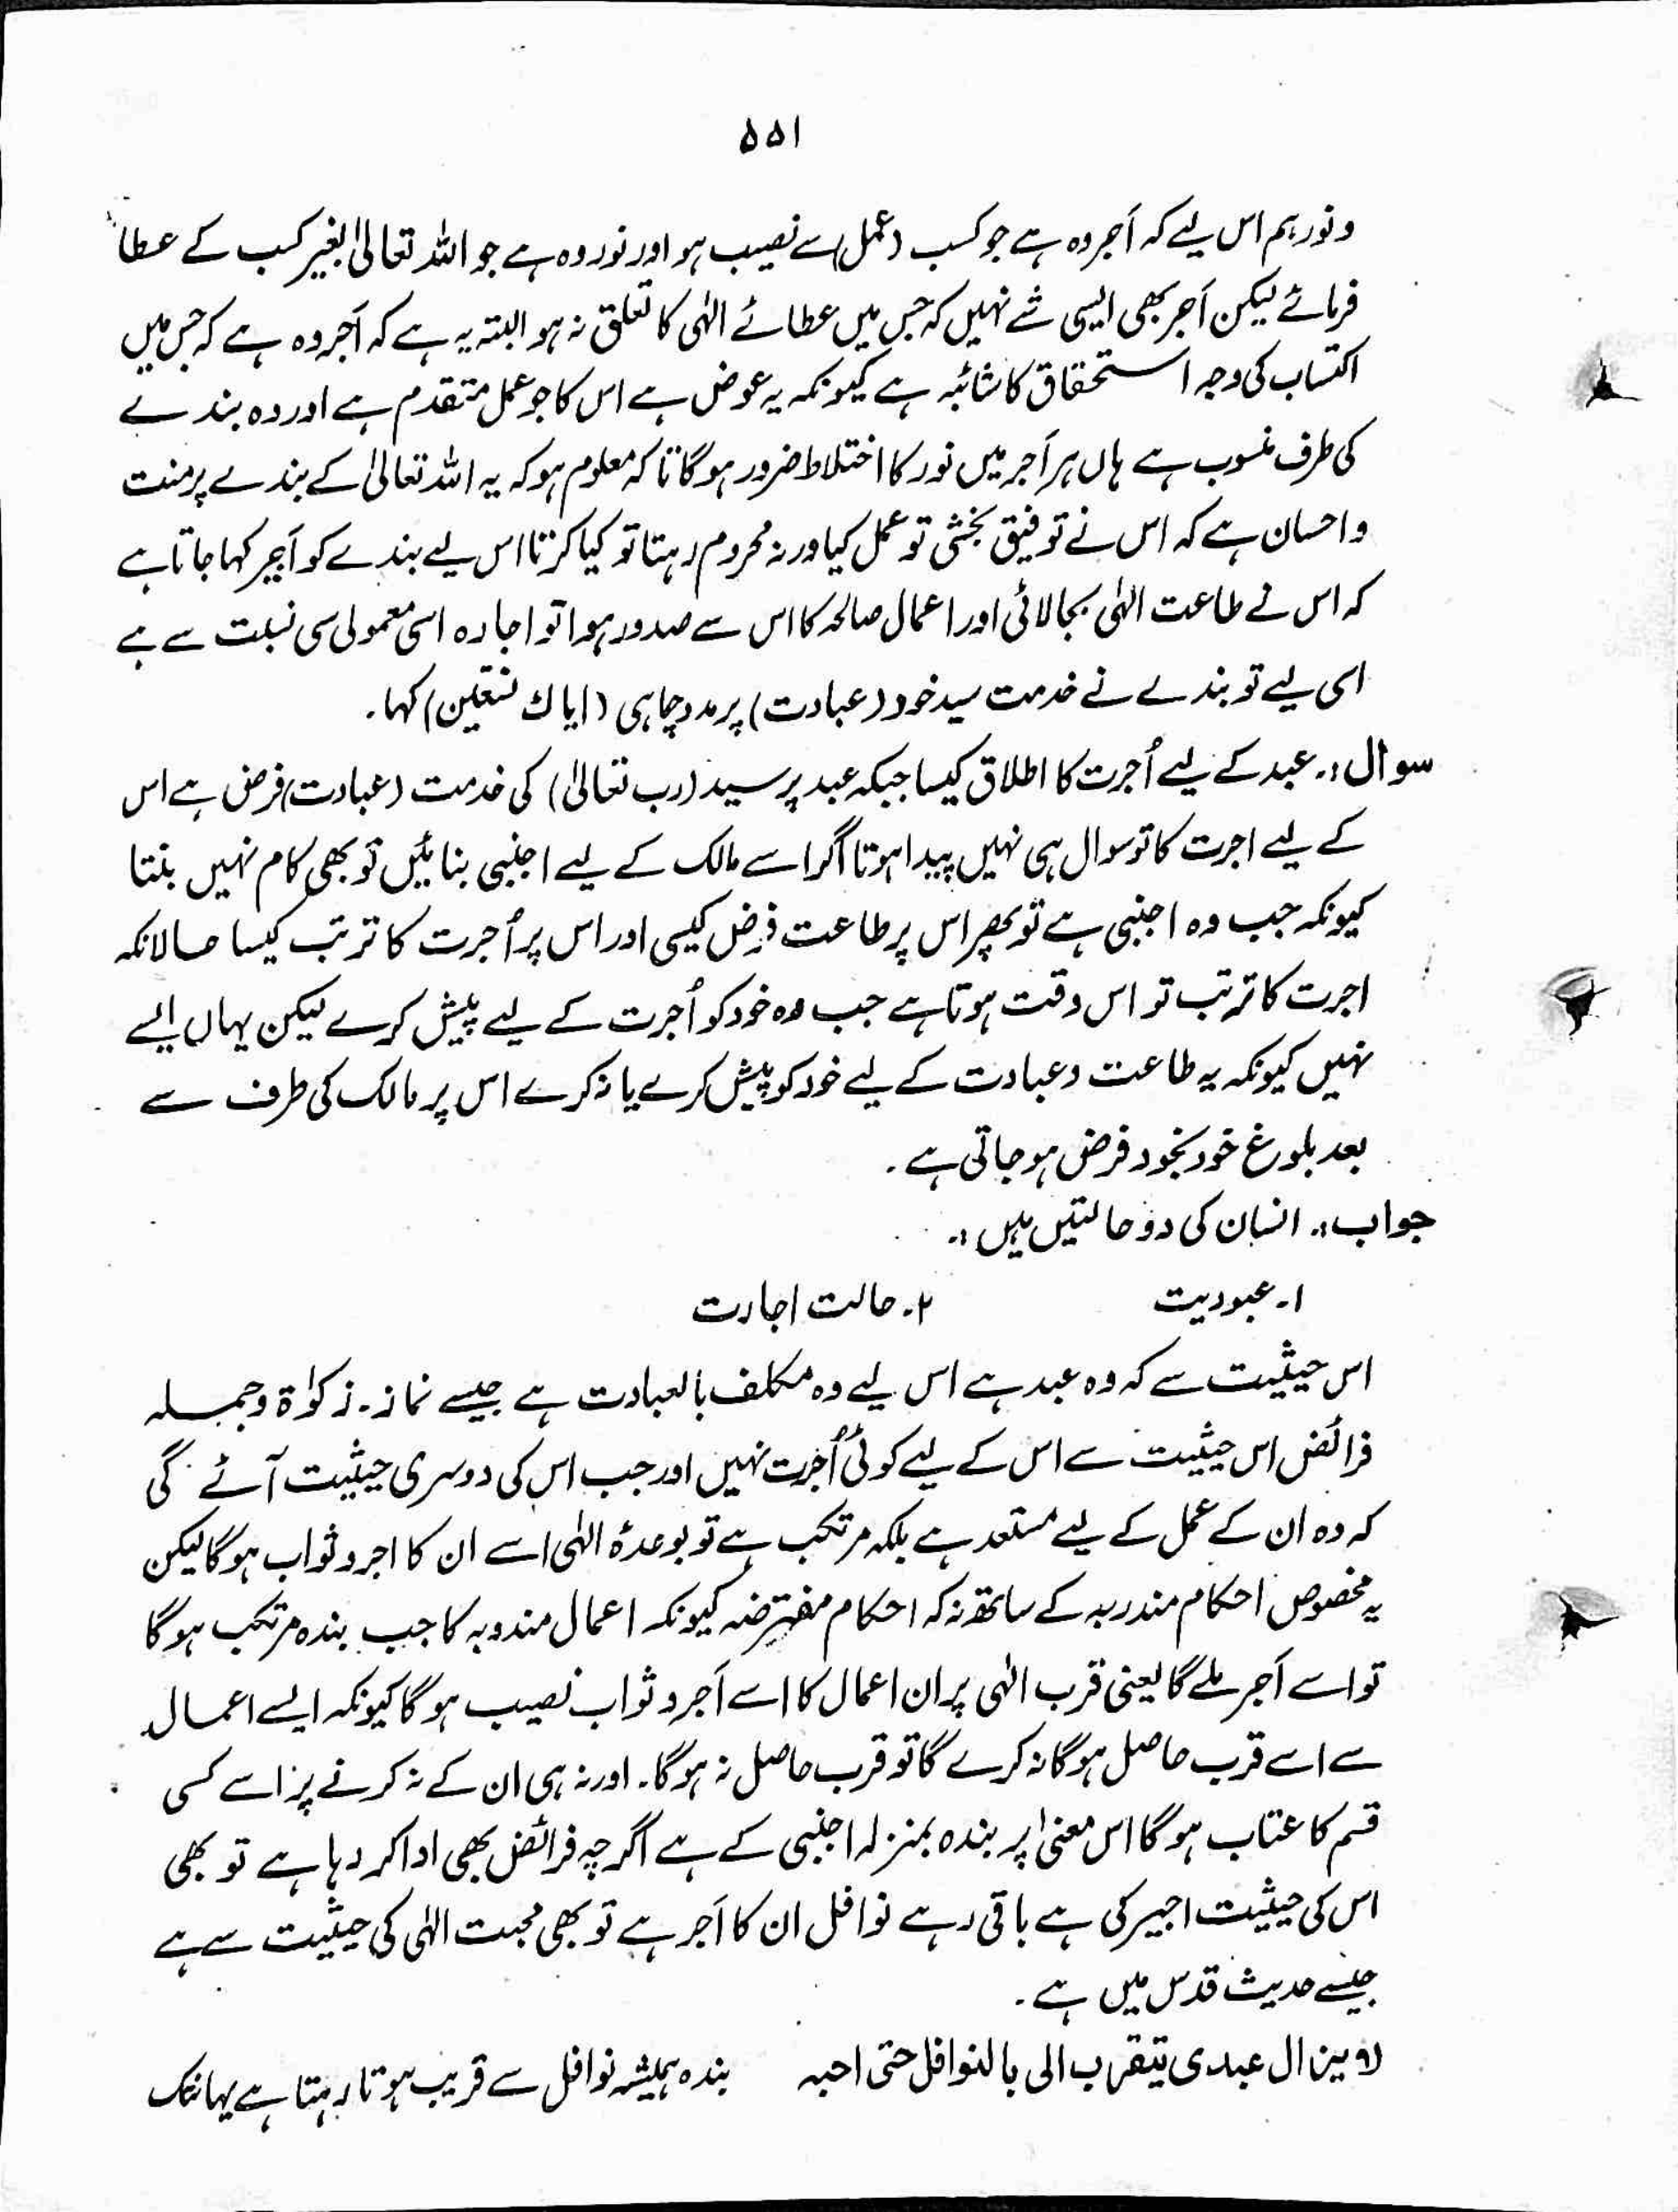 ۵۵۱
و نورہم اس لیے کہ اَجر وہ ہے جو کسب (عمل) سے نصیب ہو اور نور وہ ہے جو اللہ تعالیٰ بغیر کسب کے عطا
فرمائے لیکن اَجر بھی ایسی شے نہیں کہ جس میں عطائے الٰہی کا تعلق نہ ہو البتہ یہ ہے کہ اَجر وہ ہے کہ جس میں
اکتساب کی وجہ استحقاق کا شائبہ ہے کیونکہ یہ عوض ہے اس کا جو عمل متقدم ہے اور وہ بندے
کی طرف منسوب ہے ہاں ہر اَجر میں نور کا اختلاط ضرور ہوگا تا کہ معلوم ہو کہ یہ اللہ تعالیٰ کے بندے پر منت
و احسان ہے کہ اس نے توفیق بخشی تو عمل کیا ورنہ محروم رہتا تو کیا کرتا اس لیے بندے کو اَجیر کہا جاتا ہے
کہ اس نے طاعت الٰہی بجا لائی اور اعمال صالحہ کا اس سے صدور ہوا تو اجارہ اسی معمولی سی نسبت سے ہے
اسی لیے تو بندے نے خدمت سید خود (عبادت) پر مدد چاہی (ایاك نستعین) کہا۔
سوال :۔ عبد کے لیے اُجرت کا اطلاق کیسا جبکہ عبد پر سید (رب تعالیٰ) کی خدمت (عبادت) فرض ہے اس
کے لیے اجرت کا تو سوال ہی نہیں پیدا ہوتا اگر اسے مالک کے لیے اجنبی بنائیں تو بھی کام نہیں بنتا
کیونکہ جب وہ اجنبی ہے تو پھر اس پر طاعت فرض کیسی اور اس پر اُجرت کا ترتب کیسا حالانکہ
اجرت کا ترتب تو اس وقت ہوتا ہے جب وہ خود کو اُجرت کے لیے پیش کرے لیکن یہاں ایسے
نہیں کیونکہ یہ طاعت و عبادت کے لیے خود کو پیش کرے یا نہ کرے اس پر مالک کی طرف سے
بعد بلوغ خود بخود فرض ہو جاتی ہے۔
جواب :۔ انسان کی دو حالتیں ہیں :۔
۱۔ عبودیت ۲۔ حالت اجارت
اس حیثیت سے کہ وہ عبد ہے اس لیے وہ مکلف بالعبادت ہے جیسے نماز۔ زکوٰۃ و جملہ
فرائض اس حیثیت سے اس کے لیے کوئی اُجرت نہیں اور جب اس کی دوسری حیثیت آئے گی
کہ وہ ان کے عمل کے لیے مستعد ہے بلکہ مرتکب ہے تو بوعدۂ الٰہی اسے ان کا اجر و ثواب ہوگا لیکن
یہ مخصوص احکام مندوبہ کے ساتھ نہ کہ احکام مفترضہ کیونکہ اعمال مندوبہ کا جب بندہ مرتکب ہوگا
تو اسے اَجر ملے گا یعنی قرب الٰہی پر ان اعمال کا اسے اَجر و ثواب نصیب ہوگا کیونکہ ایسے اعمال
سے اسے قرب حاصل ہوگا نہ کرے گا تو قرب حاصل نہ ہوگا۔ اور نہ ہی ان کے نہ کرنے پر اسے کسی
قسم کا عتاب ہوگا اس معنیٰ پر بندہ بمنزلہ اجنبی کے ہے اگرچہ فرائض بھی ادا کر رہا ہے تو بھی
اس کی حیثیت اجیر کی ہے باقی رہے نوافل ان کا اَجر ہے تو بھی محبت الٰہی کی حیثیت سے ہے
جیسے حدیث قدس میں ہے۔
(و یزال عبدی یتقرب الی بالنوافل حتی احبہ بندہ ہمیشہ نوافل سے قریب ہوتا رہتا ہے یہانتک